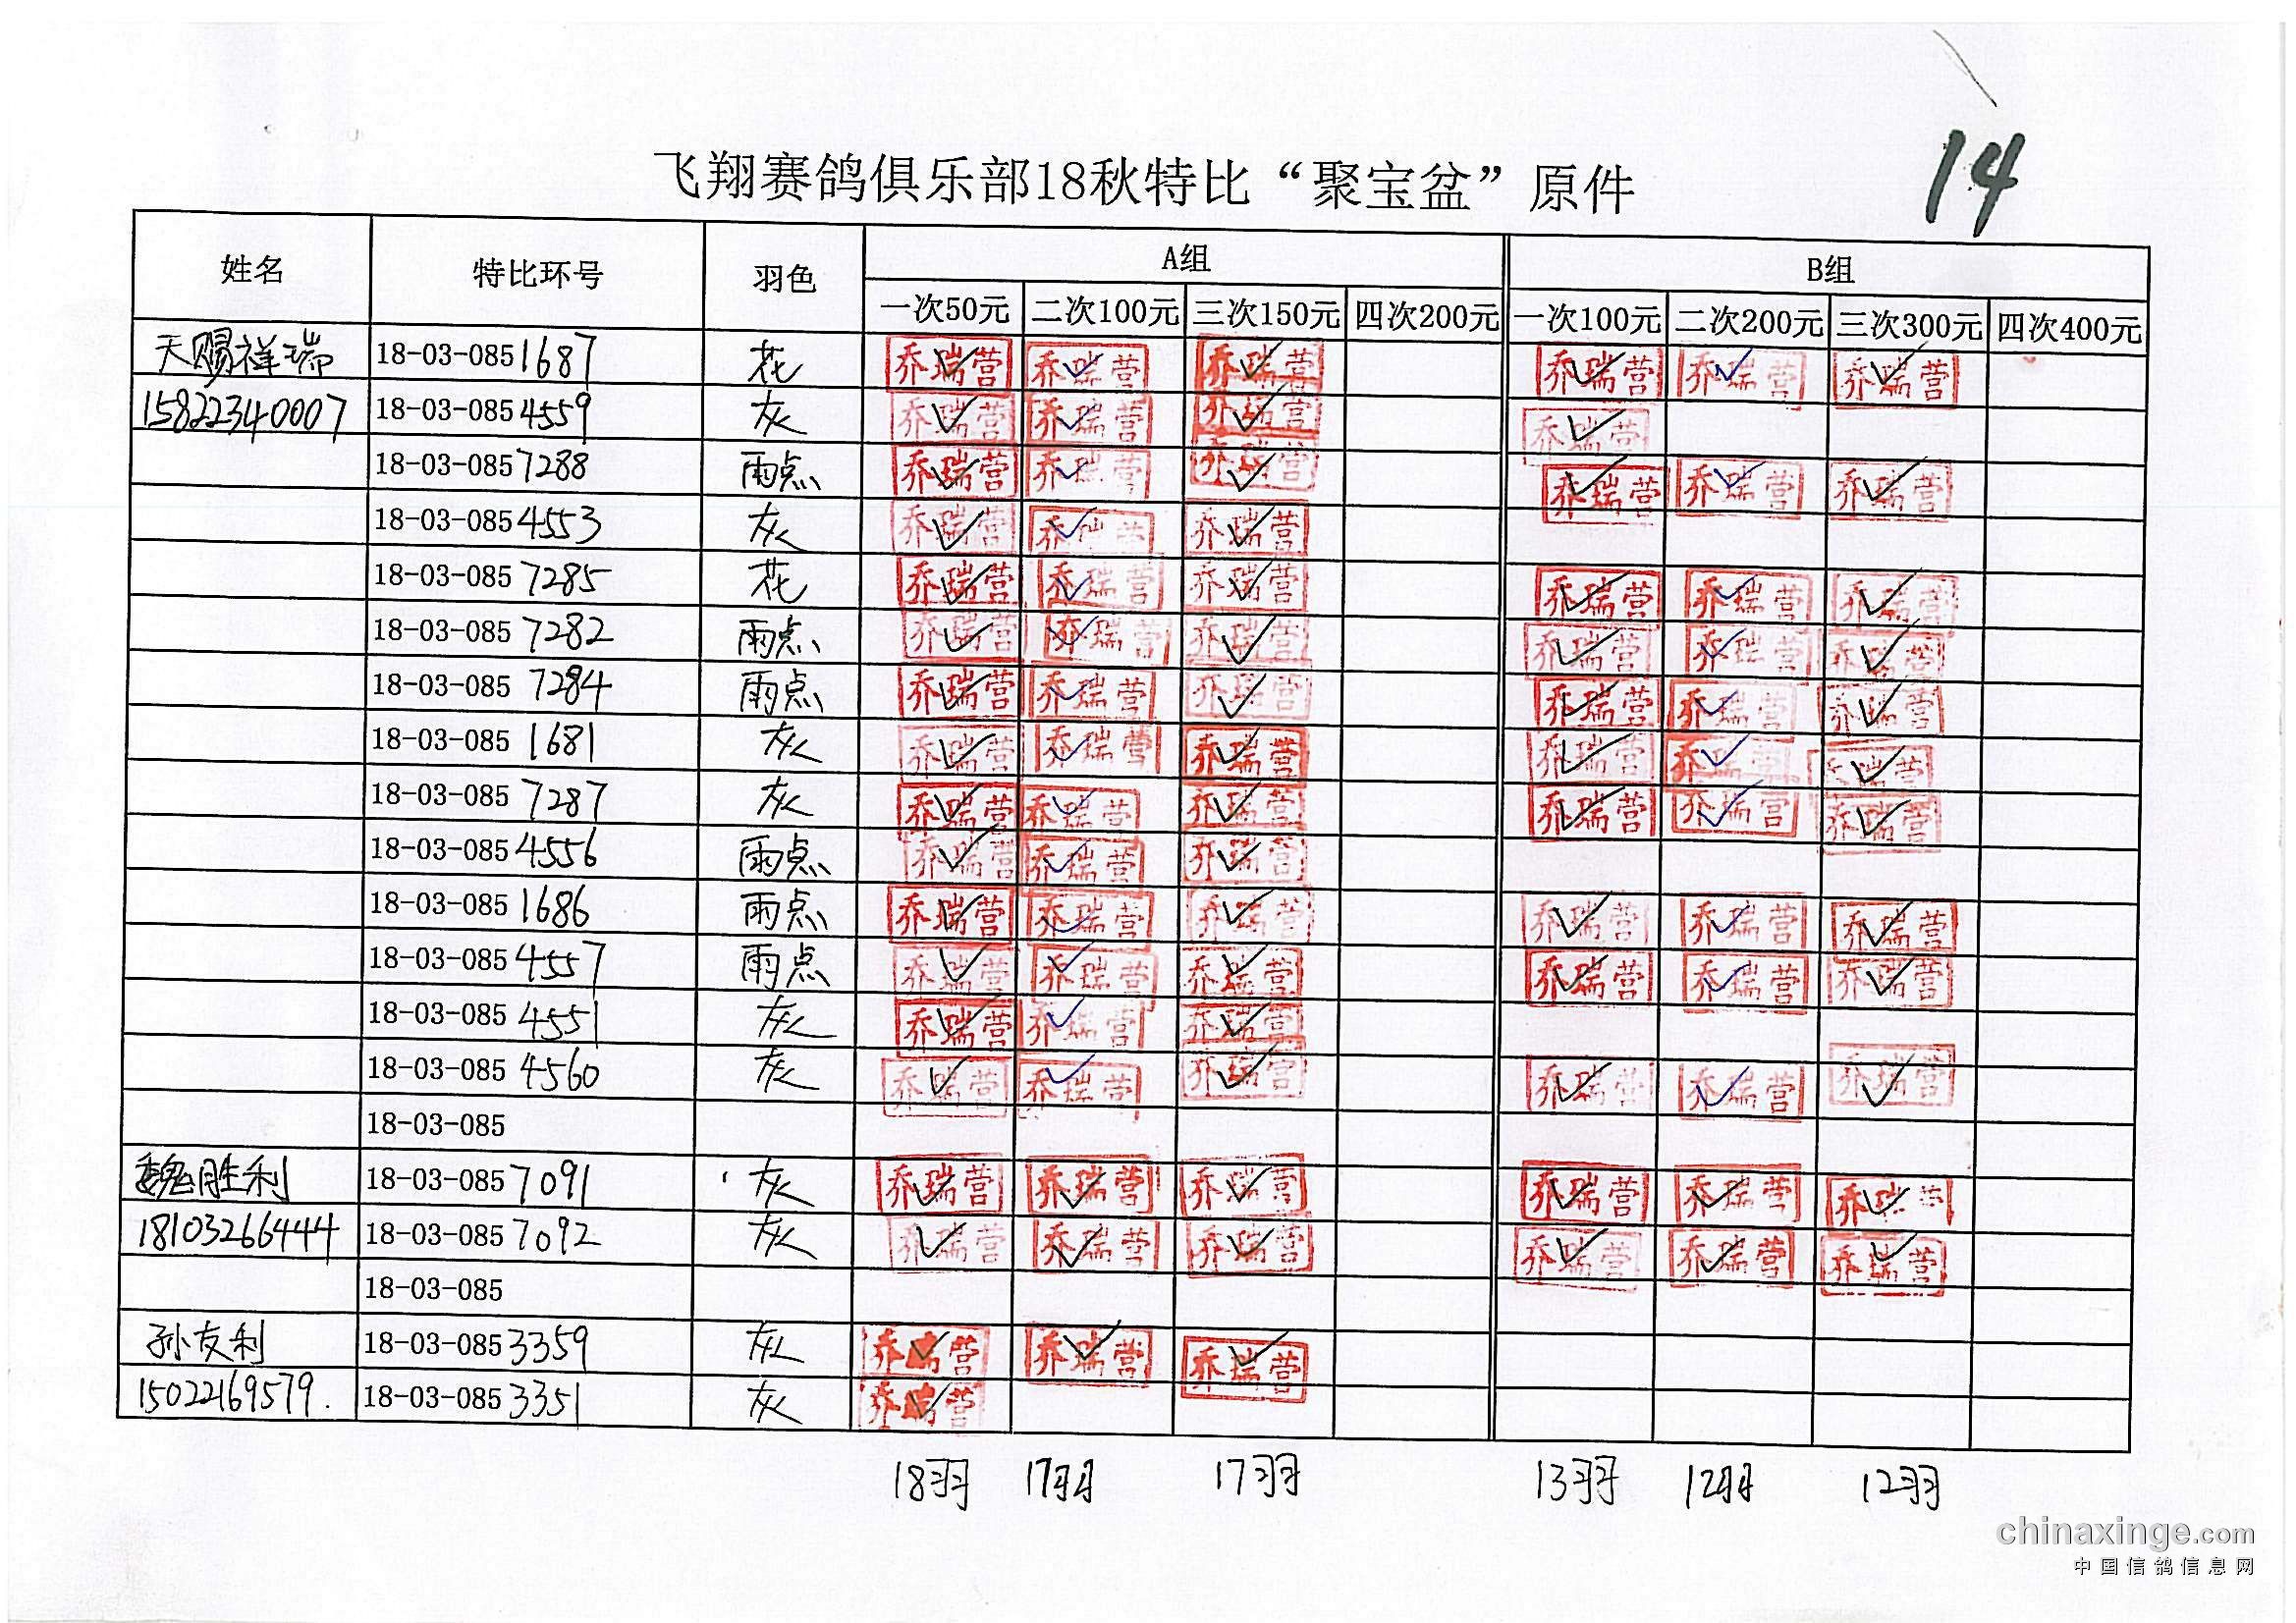 14
飞翔赛鸽俱乐部18秋特比“聚宝盆”原件
姓名 特比环号 羽色 A组 B组
一次50元 二次100元 三次150元 四次200元 一次100元 二次200元 三次300元 四次400元
天赐祥瑞 18-03-0851687 花 乔瑞营 乔瑞营 乔瑞营 乔瑞营 乔瑞营 乔瑞营
15822340007 18-03-0854559 灰 乔瑞营 乔瑞营 乔瑞营 乔瑞营
18-03-0857288 雨点 乔瑞营 乔瑞营 乔瑞营 乔瑞营 乔瑞营 乔瑞营
18-03-0854553 灰 乔瑞营 乔瑞营 乔瑞营
18-03-0857285 花 乔瑞营 乔瑞营 乔瑞营 乔瑞营 乔瑞营 乔瑞营
18-03-0857282 雨点 乔瑞营 乔瑞营 乔瑞营 乔瑞营 乔瑞营 乔瑞营
18-03-0857284 雨点 乔瑞营 乔瑞营 乔瑞营 乔瑞营 乔瑞营 乔瑞营
18-03-0851681 灰 乔瑞营 乔瑞营 乔瑞营 乔瑞营 乔瑞营 乔瑞营
18-03-0857287 灰 乔瑞营 乔瑞营 乔瑞营 乔瑞营 乔瑞营 乔瑞营
18-03-0854556 雨点 乔瑞营 乔瑞营 乔瑞营
18-03-0851686 雨点 乔瑞营 乔瑞营 乔瑞营 乔瑞营 乔瑞营 乔瑞营
18-03-0854557 雨点 乔瑞营 乔瑞营 乔瑞营 乔瑞营 乔瑞营 乔瑞营
18-03-0854551 灰 乔瑞营 乔瑞营 乔瑞营
18-03-0854560 灰 乔瑞营 乔瑞营 乔瑞营 乔瑞营 乔瑞营 乔瑞营
18-03-085
魏胜利 18-03-0857091 灰 乔瑞营 乔瑞营 乔瑞营 乔瑞营 乔瑞营 乔瑞营
18103266444 18-03-0857092 灰 乔瑞营 乔瑞营 乔瑞营 乔瑞营 乔瑞营 乔瑞营
18-03-085
孙友利 18-03-0853359 灰 乔瑞营 乔瑞营 乔瑞营
15022169579. 18-03-0853351 灰 乔瑞营
18羽 17羽 17羽 13羽 12羽 12羽
chinaxinge.com
中国信鸽信息网